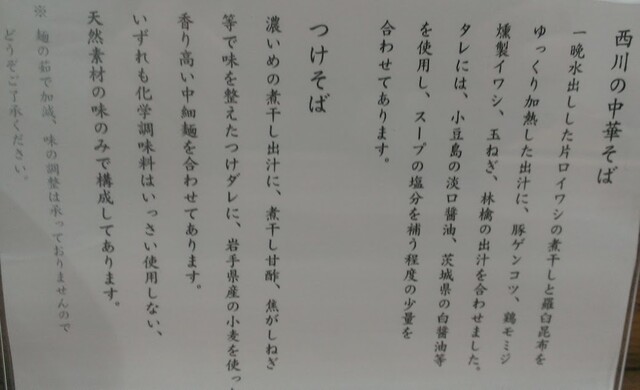 西川の中華そば
一晩水出しした片口イワシの煮干しと羅臼昆布を
ゆっくり加熱した出汁に、豚ゲンコツ、鶏モミジ
燻製イワシ、玉ねぎ、林檎の出汁を合わせました。
タレには、小豆島の淡口醤油、茨城県の白醤油等
を使用し、スープの塩分を補う程度の少量を
合わせてあります。
つけそば
濃いめの煮干し出汁に、煮干し甘酢、焦がしねぎ
等で味を整えたつけダレに、岩手県産の小麦を使っ
香り高い中細麺を合わせてあります。
いずれも化学調味料はいっさい使用しない、
天然素材の味のみで構成してあります。
※ 麺の茹で加減、味の調整は承っておりませんので
どうぞご了承ください。